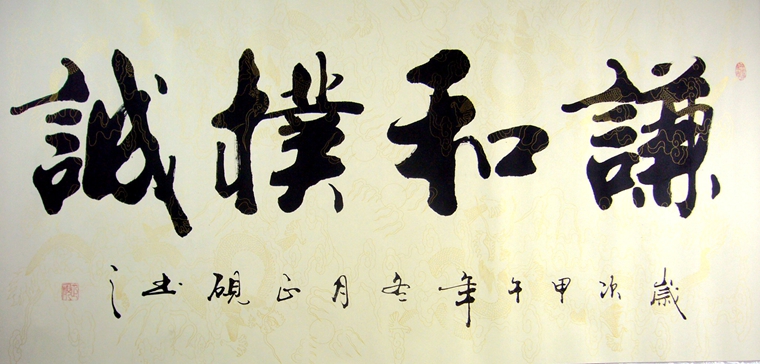 謙和樸誠
歲次甲午年冬月正硯書之